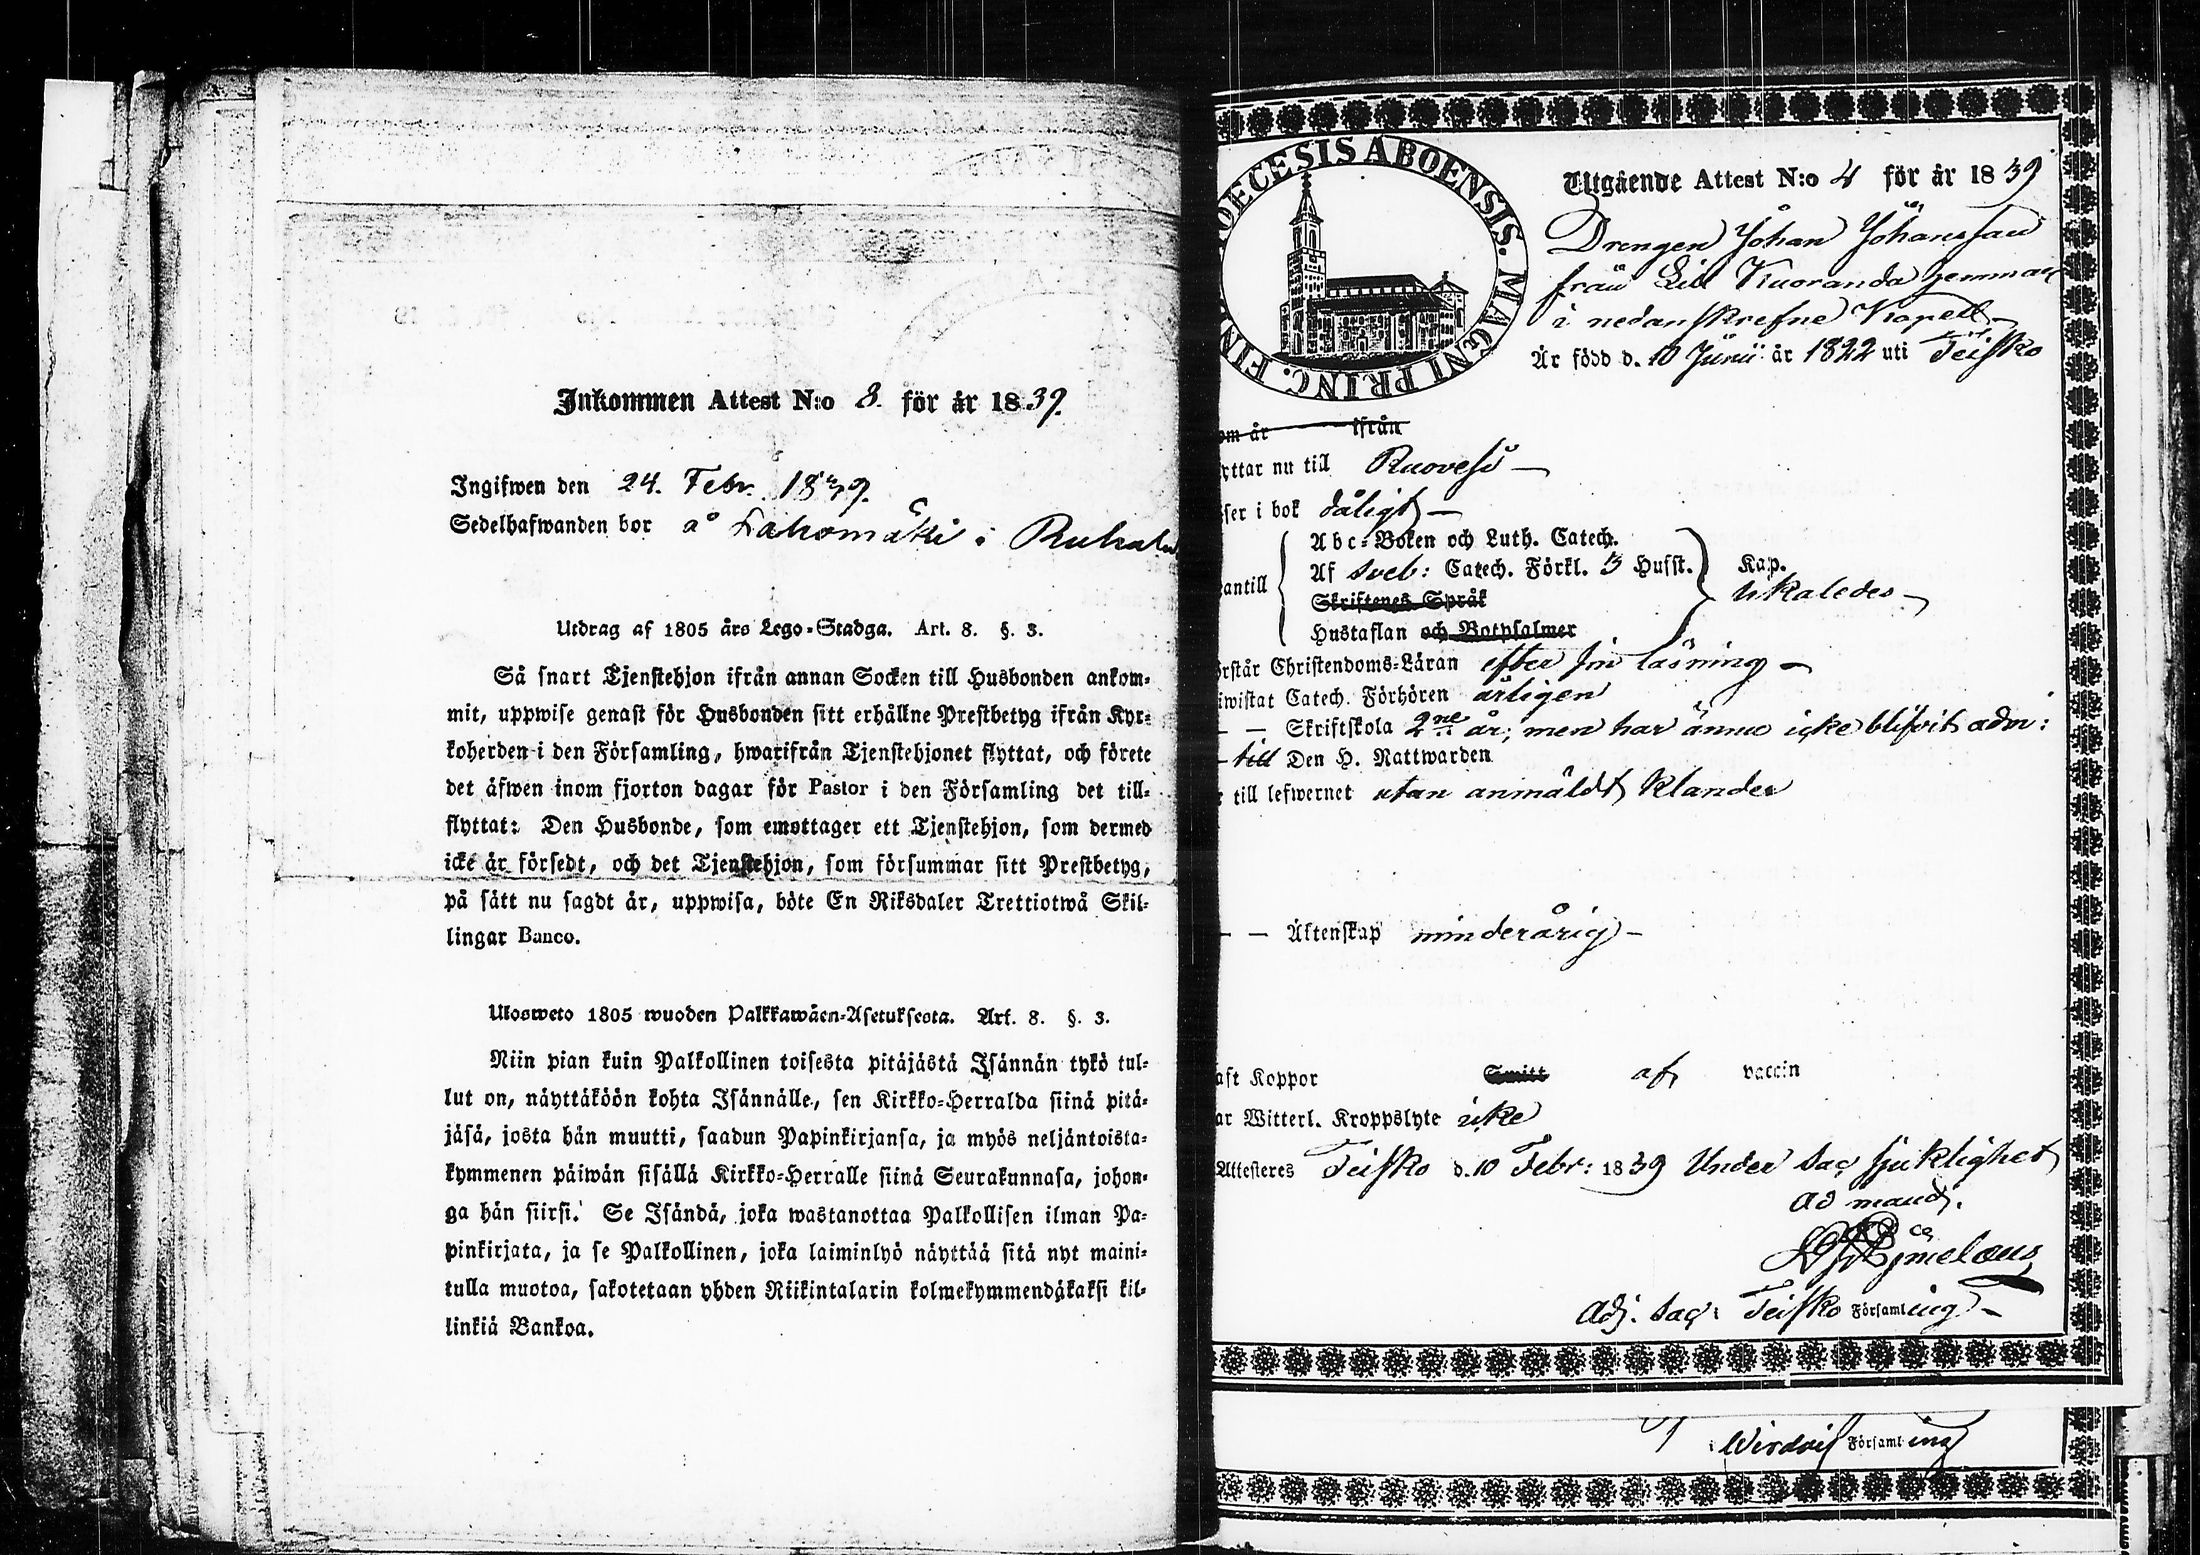 Inkommen Attest N:o 8. för år 1839.
Ingifwen den 24. Febr. 1839.
Sedelhafwanden bor å Lahomäki i
Utdrag af 1805 års Lego-Stadga. Art. 8. §. 3.
Så snart Tjenstehjon ifrån annan Socken till Husbonden ankom-
mit, uppwise genast för Husbonden sitt erhållne Prestbetyg ifrån Kyr-
koherden i den Församling, hwarifrån Tjenstehjonet flyttat, och förete
det äfwen inom fjorton dagar för Pastor i den Församling det till-
flyttat: Den Husbonde, som emottager ett Tjenstehjon, som dermed
icke är försedt, och det Tjenstehjon, som försummar sitt Prestbetyg,
på sätt nu sagdt är, uppwisa, böte En Riksdaler Trettiotwå Skil-
lingar Banco.
Ulosweto 1805 wuoden Palkkawäen-Asetuksesta. Art. 8. §. 3.
Niin pian kuin Palkollinen toisesta pitäjästä Isännän tykö tul-
lut on, näyttäköön kohta Isännälle, sen Kirkko-Herralda siinä pitä-
jäsä, josta hän muutti, saadun Papinkirjansa, ja myös neljäntoista-
kymmenen päiwän sisällä Kirkko-Herralle siinä Seurakunnasa, johon-
ga hän siirsi. Se Isändä, joka wastanottaa Palkollisen ilman Pa-
pinkirjata, ja se Palkollinen, joka laiminlyö näyttää sitä nyt maini-
tulla muotoa, sakotetaan yhden Riikintalarin kolmekymmendäkaksi kil-
linkiä Bankoa.
OECESIS ABOENSIS. MAGNI PRINC. FIN
Utgående Attest N:o 4 för år 1839
Drengen Johan Johansson
från Lill Kuoranda hemman
i nedanskrefne Kapell
Är född d. 10 Junii år 1822 uti Teisko
om år ifrån
yttar nu till Ruovesi
ser i bok dåligt
Abc-Boken och Luth. Catech.
Af Sveb: Catech. Förkl. 3 Hufst. Kap.
antill
Skriftenes Språk
likaledes
Hustaflan och Botpsalmer
örstår Christendoms-Läran efter sin läsning
iwistat Catech. Förhören årligen
— — Skriftskola 2ne år; men har ännu icke blifvit adm:
— till Den H. Nattwarden
till lefwernet utan anmäldt klander
— — Äktenskap minderårig
aft Koppor Smitt af vaccin
ar Witterl. Kroppslyte icke
Attesteres Teisko d. 10 Febr: 1839 Under Sac sjuklighet
ad mand.
Adj. Sac: Teisko Församling
i Wirdois Församling